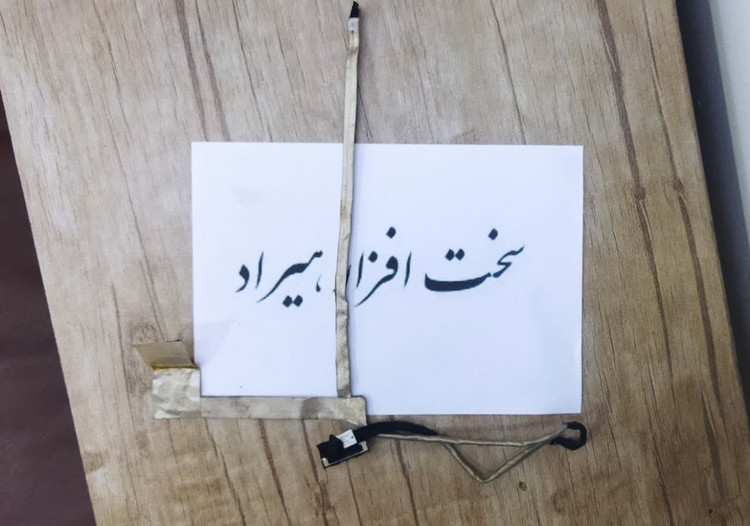 سخت افزار هیراد